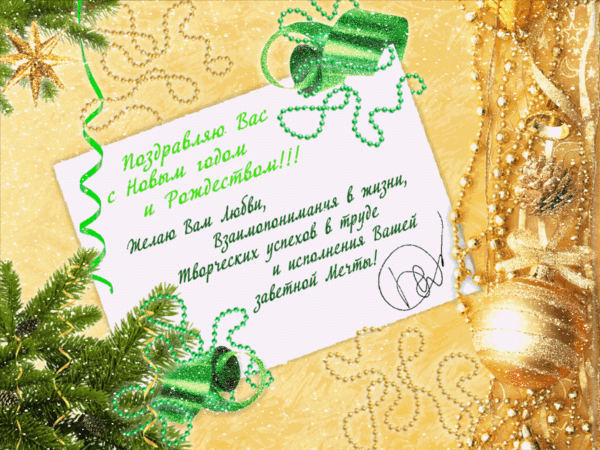 Поздравляю Вас
с Новым годом
и Рождеством!!!
Желаю Вам Любви,
Взаимопониманчя в жизни,
Творческих успехов в труде
и исполнения Вашей
заветной Мечты!